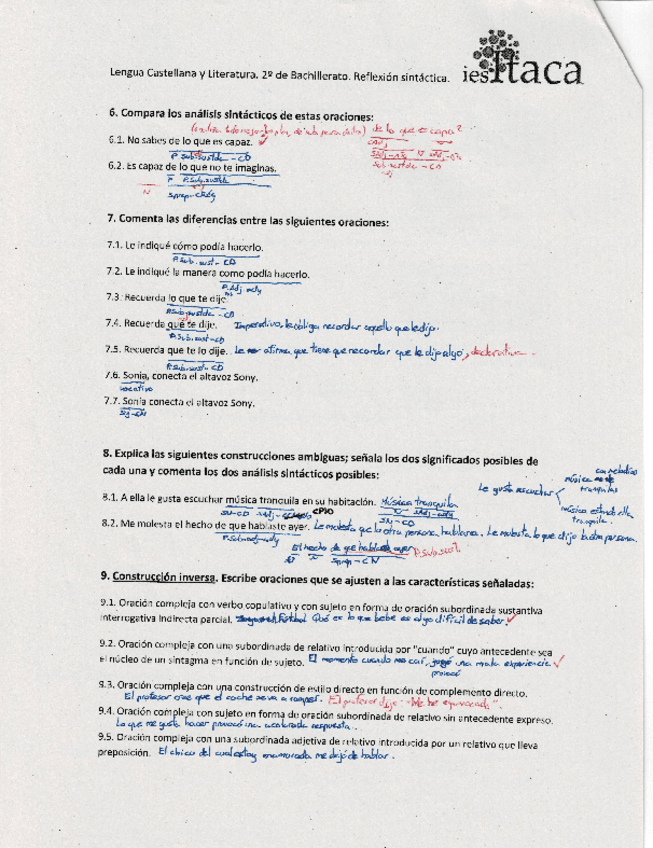 Lengua Castellana y Literatura. 2º de Bachillerato. Reflexión sintáctica.
ies Itaca
6. Compara los análisis sintácticos de estas oraciones:
de lo que es capaz?
6.1. No sabes de lo que es capaz.
P. Sub. sust de - CD
6.2. Es capaz de lo que no te imaginas.
N
7. Comenta las diferencias entre las siguientes oraciones:
7.1. Le indiqué cómo podía hacerlo.
P. Sub. sust - CD
7.2. Le indiqué la manera como podía hacerlo.
P. Adj - ady
7.3. Recuerda lo que te dije.
7.4. Recuerda qué te dije. Imperativo, le obliga recordar aquello que le dijo.
P. Sub. sust - CD
7.5. Recuerda que te lo dije. Le afirma que tiene que recordar que le dijo algo, declarativa.
P. Sub. sust - CD
7.6. Sonia, conecta el altavoz Sony.
vocativo
7.7. Sonia conecta el altavoz Sony.
8. Explica las siguientes construcciones ambiguas; señala los dos significados posibles de
cada una y comenta los dos análisis sintácticos posibles:
Le gusta escuchar
música
tranquilas
música estando ella
tranquila.
8.1. A ella le gusta escuchar música tranquila en su habitación. Música tranquila
SN-CD CPvo
SN - CD
8.2. Me molesta el hecho de que hablaste ayer. Le molesta que la otra persona hablara. Le molesta lo que dijo la otra persona.
El hecho de que hablaste ayer P. Sub. sust.
N Sprep - CN
9. Construcción inversa. Escribe oraciones que se ajusten a las características señaladas:
9.1. Oración compleja con verbo copulativo y con sujeto en forma de oración subordinada sustantiva
interrogativa indirecta parcial. Qué es lo que bebe es algo difícil de saber.
9.2. Oración compleja con una subordinada de relativo introducida por "cuando" cuyo antecedente sea
el núcleo de un sintagma en función de sujeto. El momento cuando me caí, una mala experiencia
provocó
9.3. Oración compleja con una construcción de estilo directo en función de complemento directo.
El profesor cree que el coche se va a romper. El profesor dijo: "Me he equivocado".
9.4. Oración compleja con sujeto en forma de oración subordinada de relativo sin antecedente expreso.
Lo que me gusta hacer provocó una acalorada respuesta.
9.5. Oración compleja con una subordinada adjetiva de relativo introducida por un relativo que lleva
preposición. El chico del cual estoy enamorada me dejó de hablar.